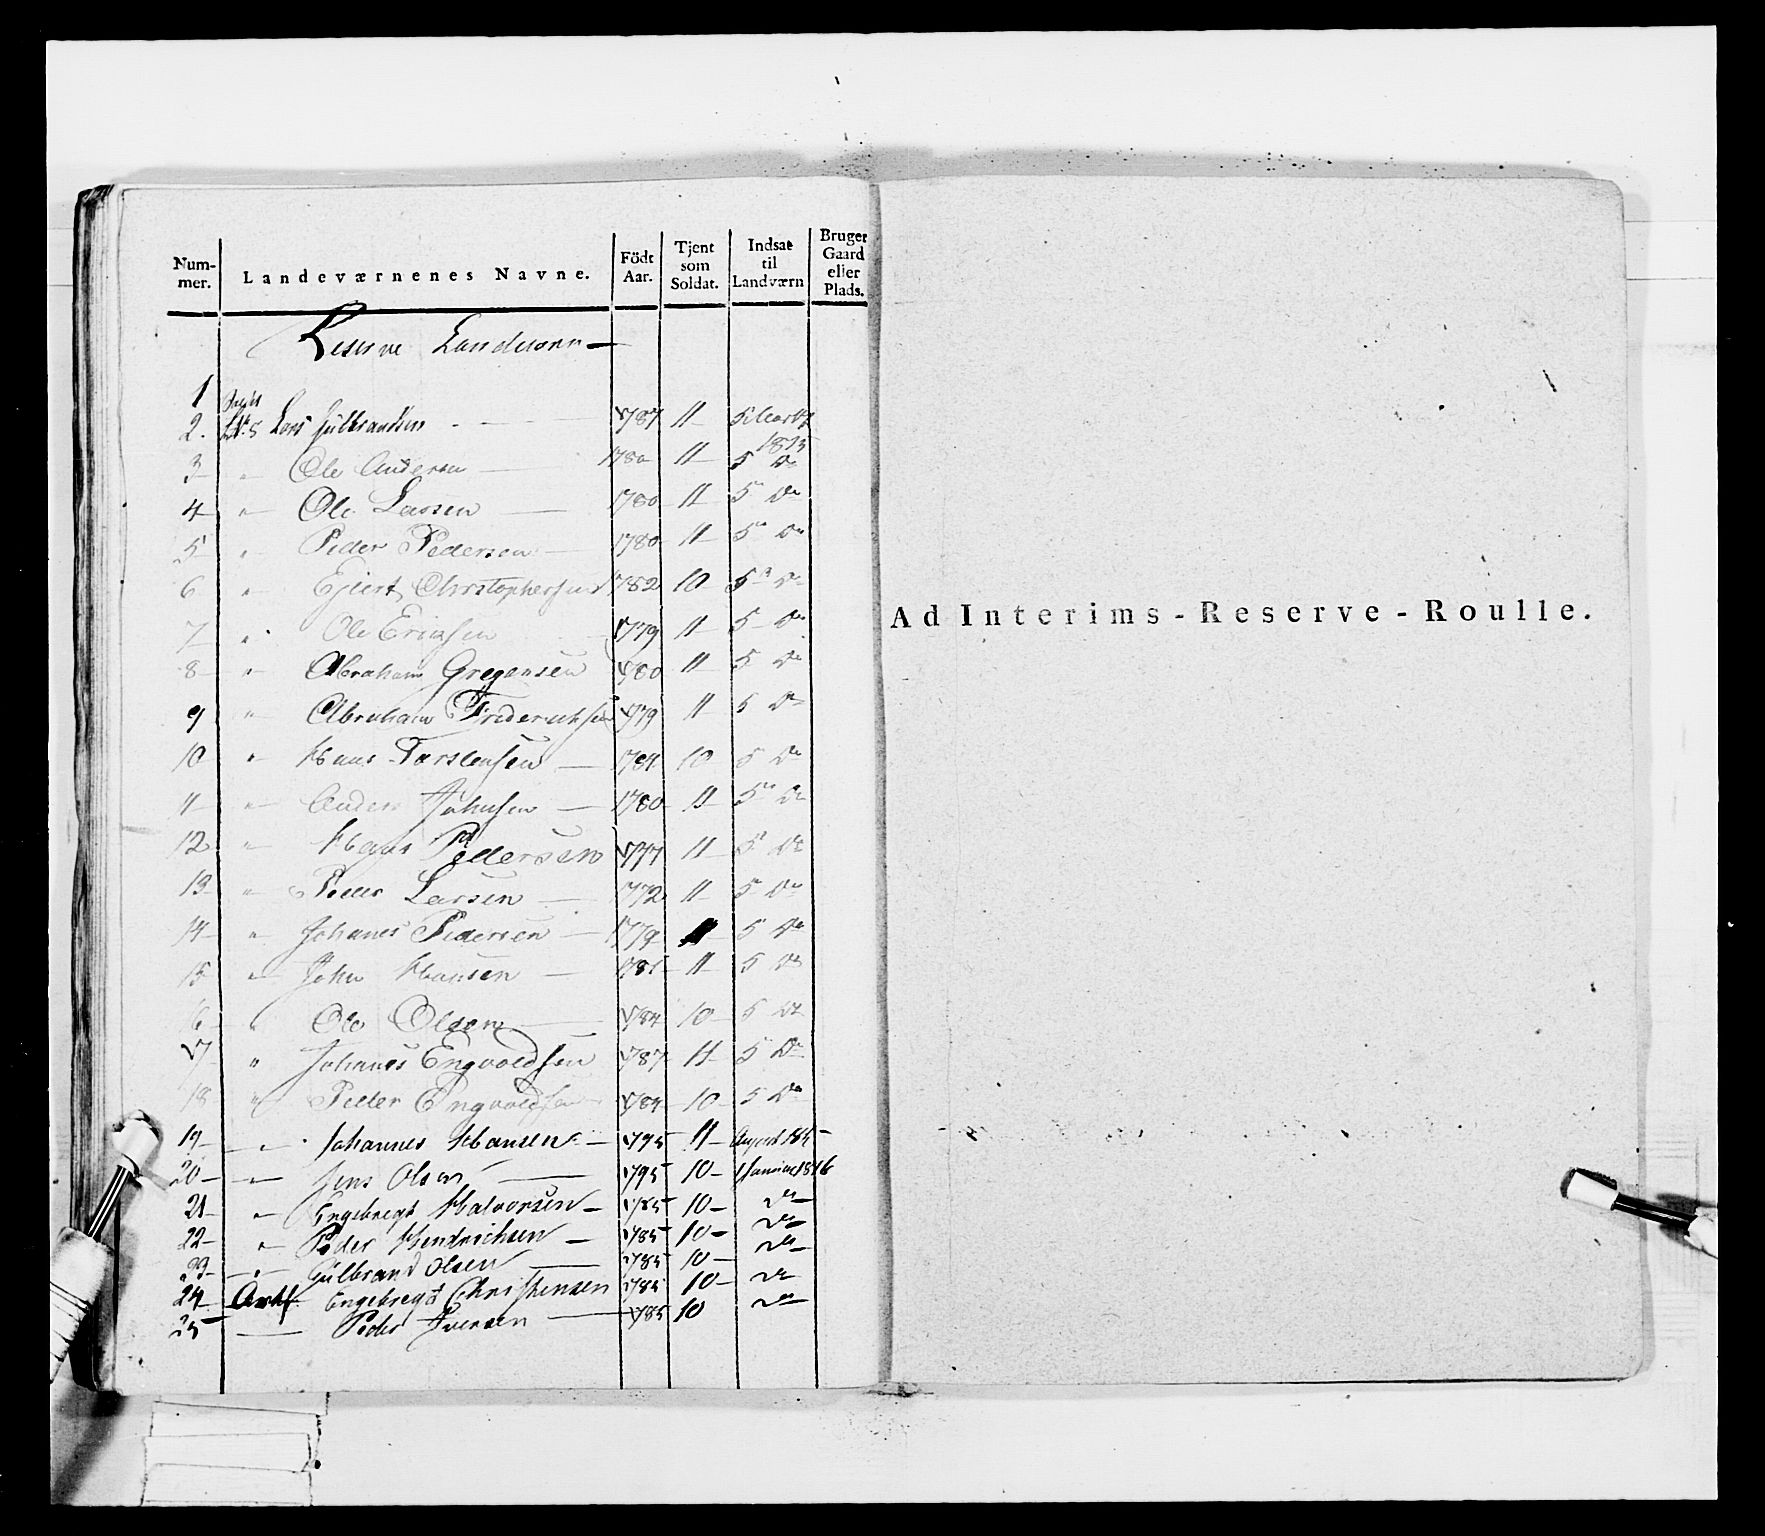 Num-mer. Landeværnenes Navne. Födt Aar. Tjent som Soldat. Indsat til Landværn Bruger Gaard eller Plads.
Reserve Landværn
1
2. Lars Gulbrandsen 1787 11 5 Marty 1815
3 " Ole Andersen 1780 11 5 do
4 " Ole Larsen 1780 11 5 do
5 " Peder Pedersen 1780 11 5 do
6 " Ejlert Christophersen 1782 10 5 do
7 " Ole Ericksen 1779 11 5 do
8 " Abraham Gregersen 1780 11 5 do
9 " Abraham Friderichsen 1779 11 5 do
10 " Hans Torstensen 1784 10 5 do
11 " Anders Johnsen 1780 11 5 do
12 " Hans Pedersen 1777 11 5 do
13 " Peder Larsen 1772 11 5 do
14 " Johanes Pedersen 1779 11 5 do
15 " John Hansen 11 5 do
16 " Ole Olsen 1784 10 5 do
17 " Johannes Engvoldsen 1787 11 5 do
18 " Peder Engvoldsen 1784 10 5 do
19 " Johannes Hansen 1795 11 August
20 " Jens Olsen 1795 10 1 Januar 1816
21 " Engebregt Halvorsen 1785 10 do
22 " Peder Hendrichsen 1785 10 do
23 " Gulbrand Olsen 1785 10 do
24 Engebregt Christensen 1785 10 do
25 Peder Iversen 1785 10 do
Ad Interims-Reserve-Roulle.